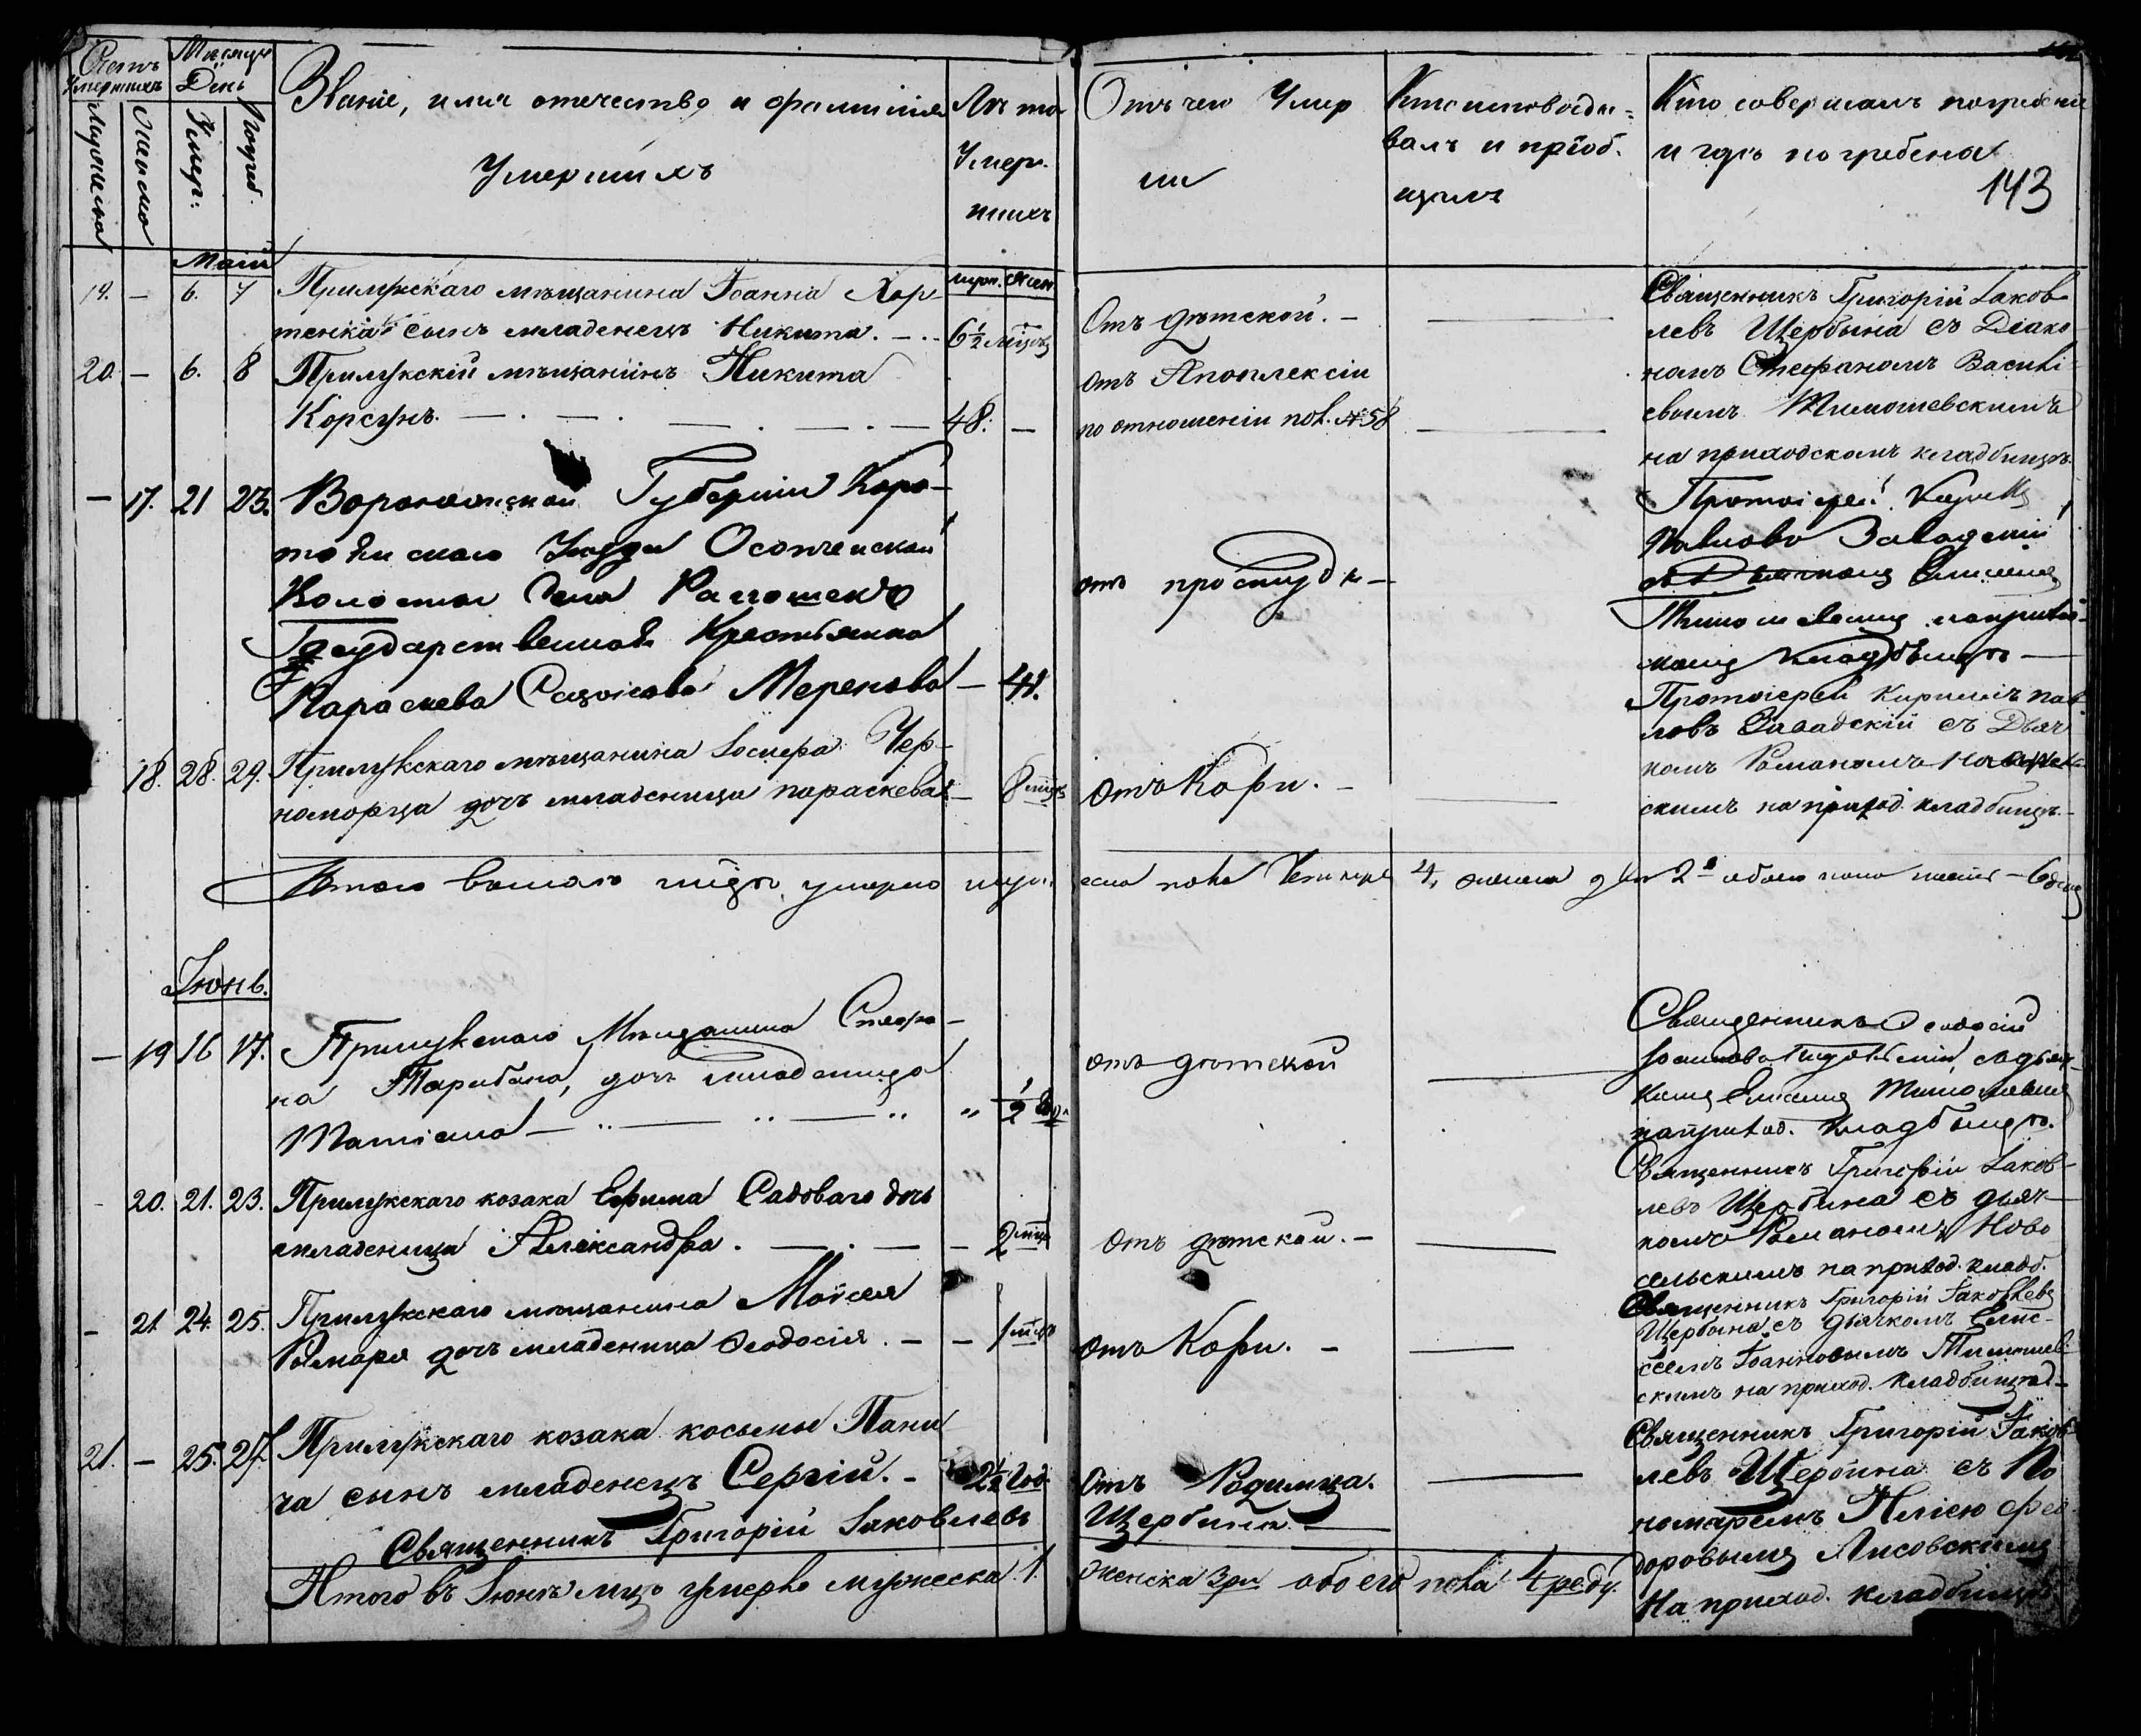 Счетъ умершихъ
Мѣсяцъ День
мужеска
женска
Умер:
Погреб.
Званіе, имя отечество и фамилія
Умершихъ
Лѣта
Умер-
шихъ
Отъ чего Умер
ли
Кто исповѣды-
валъ и пріоб-
щилъ
Кто совершалъ погребеніе
и гдѣ погребены
143
Маій
муж. жен.
19. — 6. 7 Прилукскаго мѣщанина Іоанна Хор-
тенка сынъ младенецъ Никита. — 6½ мѣсяц
Отъ дѣтской. —
Священникъ Григорій Іаков-
левъ Щербина съ Діако-
номъ Стефаномъ Васи­ліе-
вымъ Тимошевскимъ
на приходскомъ кладбищѣ.
20. — 6. 8 Прилукскій мѣщанинъ Никита
Корсунъ. — 48. —
отъ Апоплексіи
по отношенію пол. №58
— 17. 21 23. Воронежской Губерніи Коро-
тоякскаго Уѣзда
Волости Села
Государственная Крестьянка
Параскева Мерекова — 41.
отъ простуды —
Протоіерей Кирилъ
Павловъ Завадскій
Тимошевскимъ на приход-
скомъ кладбищѣ —
18. 28. 29. Прилукскаго мѣщанина Іосифа Чер-
номорца дочь младеница параскева — 8 мѣсяц
отъ Кори. —
Протоіерей Кирилъ Пав-
ловъ Завадскій съ Дьяч-
комъ Романомъ Новосель-
скимъ на приход. кладбищѣ. —
Итого въ маіѣ мѣсяцѣ умерло муже-
ска пола четыре 4, женска два 2 обоего пола шесть — 6 душ
Іюнь.
— 19 16 17. Прилукскаго Мѣщанина Стефа-
на Тарабана, дочь младеница
Татіана — " ½ год.
отъ дѣтской
Священникъ Ѳеодосій
Іоанновъ съ дьяч-
комъ Елисеемъ Тимошевскимъ
на приход. кладбищѣ.
— 20. 21. 23. Прилукскаго козака Ефима Садоваго дочь
младеница Александра. — 2 мѣся
отъ дѣтской. —
Священникъ Григорій Іаков-
левъ Щербина съ дьяч-
комъ Романомъ Ново
сельскимъ на приход. кладб.
— 21. 24. 25. Прилукскаго мѣщанина Моѵсея
Рымаря дочь младеница Ѳеодосія. — 1 мѣся
отъ Кори. —
Священникъ Григорій Іаковлевъ
Щербина съ дьячкомъ Елис-
сеемъ Іоанновымъ Тимошев-
скимъ на приход. кладбищѣ —
21. — 25. 27. Прилукскаго козака косьмы Пани
ча сынъ младенецъ Сергій. — 2½ год.
отъ Родимца.
Священникъ Григорій Іаков-
левъ Щербина съ По
номаремъ Иліею Фео-
доровымъ Лисовскимъ
На приход. кладбищѣ
Священникъ Григорій Іаковлевъ Щербина. —
Итого въ Іюнѣ мцѣ умерло мужеска 1. женска 3 ри обоего пола 4